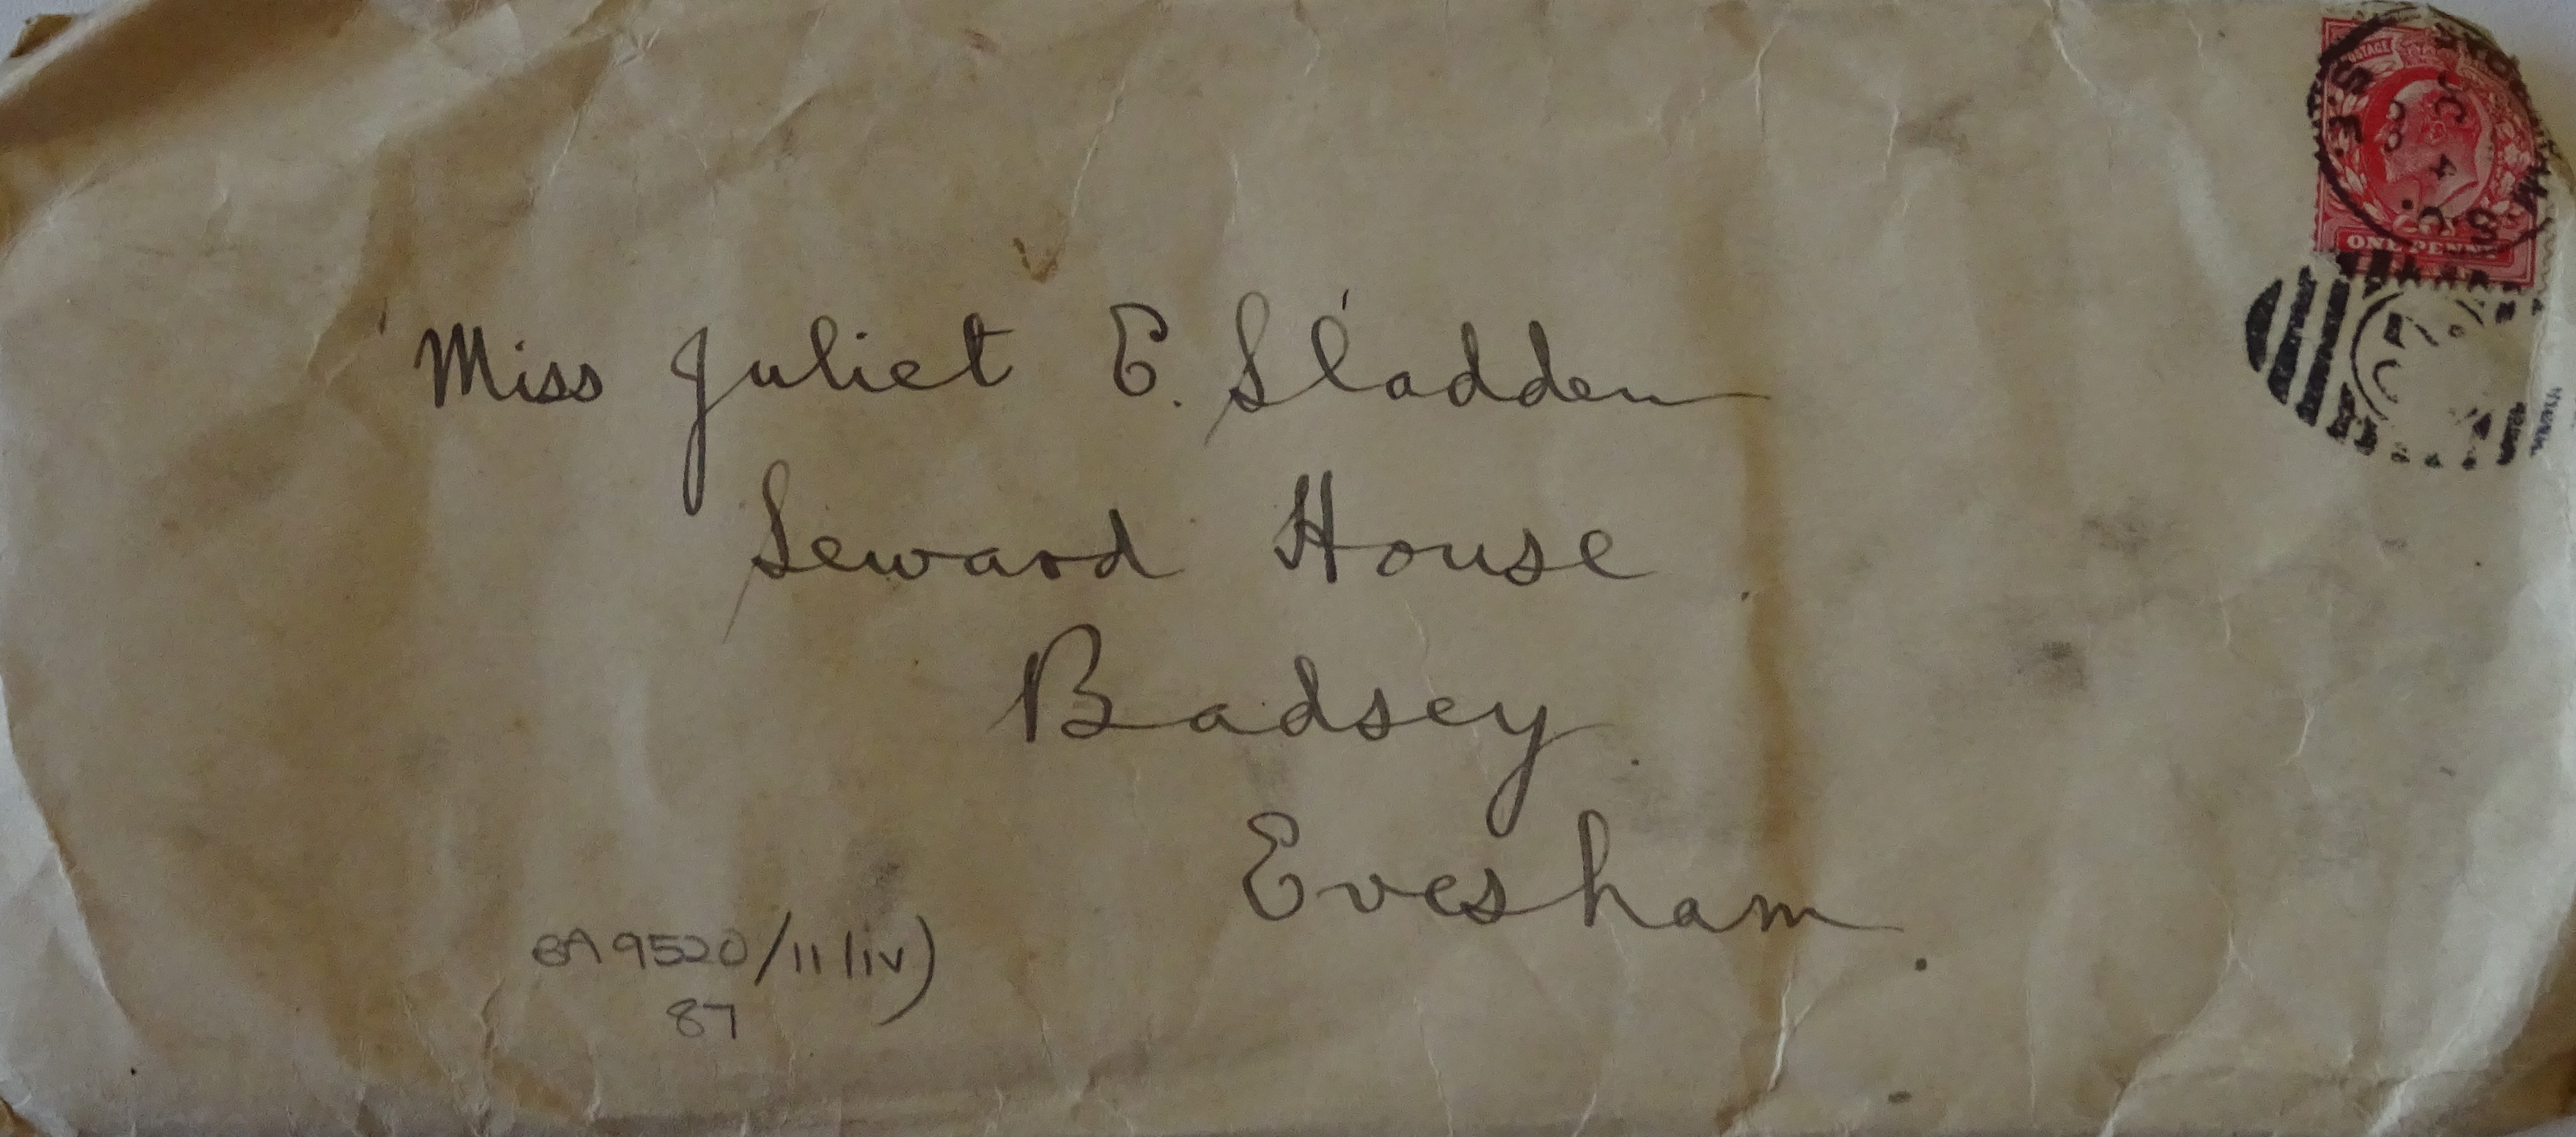 POSTAGE
ONE PENNY
S.E.
Miss Juliet E. Sladden
Seward House
Badsey
Evesham.
BA 9520/11(iv)
87